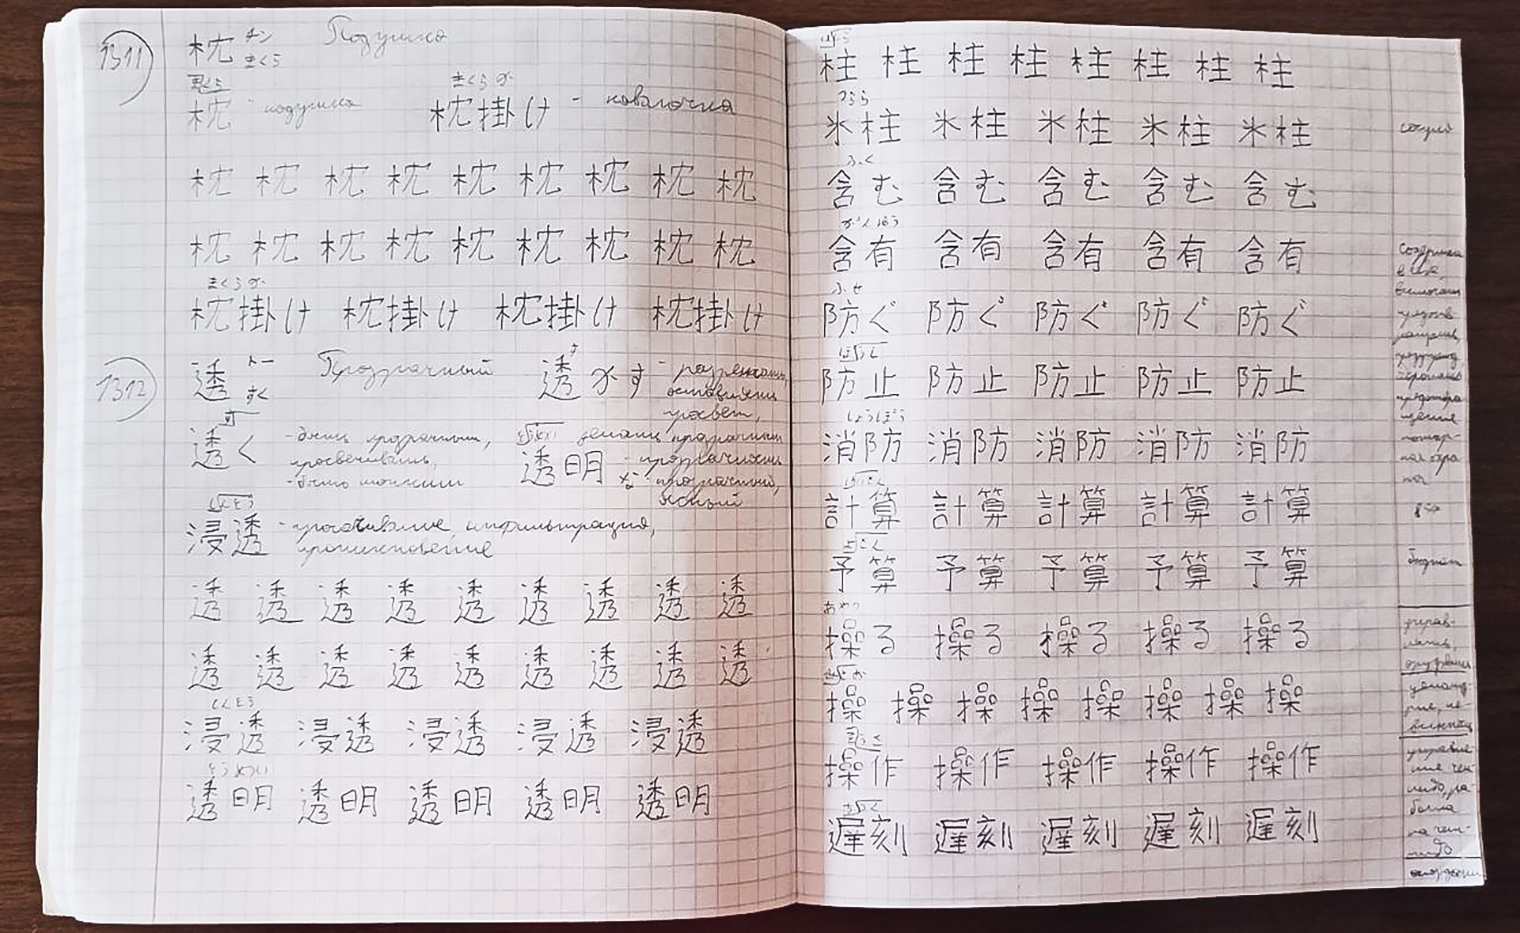 1311
枕 チン まくら Подушка
枕 - подушка 枕掛け まくらが - наволочка
枕 枕 枕 枕 枕 枕 枕 枕 枕
枕 枕 枕 枕 枕 枕 枕 枕 枕
まくらが
枕掛け 枕掛け 枕掛け 枕掛け
1312
透 トー すく Прозрачный 透かす す - разрежать, оставлять просвет,
透く す - быть прозрачным, просвечивать, - быть тонким
透明 делать прозрачным - прозрачность - прозрачный, ясный
浸透 しんとう - просачивание, инфильтрация, проникновение
透 透 透 透 透 透 透 透 透
透 透 透 透 透 透 透 透 透
しんとう
浸透 浸透 浸透 浸透 浸透
とうめい
透明 透明 透明 透明 透明
柱 柱 柱 柱 柱 柱 柱 柱
つらら
氷柱 氷柱 氷柱 氷柱 氷柱 сосулька
ふく
含む 含む 含む 含む 含む
がんゆう
含有 含有 含有 含有 含有
ふせ
防ぐ 防ぐ 防ぐ 防ぐ 防ぐ
ぼうし
防止 防止 防止 防止 防止
しょうぼう
消防 消防 消防 消防 消防
けいさん
計算 計算 計算 計算 計算
よさん
予算 予算 予算 予算 予算 бюджет
あやつ
操る 操る 操る 操る 操る управлять,
みさお
操 操 操 操 操 操 操 操
そうさ
操作 操作 操作 操作 操作
ちこく
遅刻 遅刻 遅刻 遅刻 遅刻